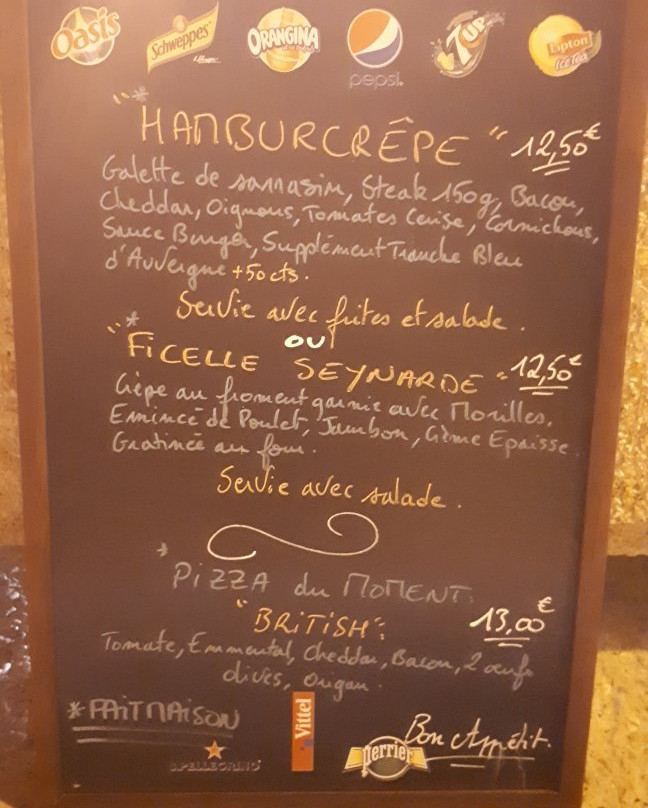 Oasis Schweppes ORANGINA pepsi 7UP Lipton Ice Tea
"* HAMBURCRÊPE" 12,50€
Galette de sarrasin, Steak 150g, Bacon,
Cheddar, Oignons, Tomates Cerise, Cornichons,
Sauce Burger, Supplément Tranche Bleu
d'Auvergne +50cts.
Servie avec frites et salade.
OU
"* FICELLE SEYNARDE" 12,50€
Crèpe au froment garnie avec Morilles,
Emincé de Poulet, Jambon, Crème Epaisse.
Gratinée au four.
Servie avec salade.
* PiZZA du MOMENT:
"BRiTiSH": 13,00€
Tomate, Emmental, Cheddar, Bacon, 2 oeufs
olives, Origan.
* FAiT MAiSON
Bon Appétit.
S.PELLEGRINO Vittel perrier